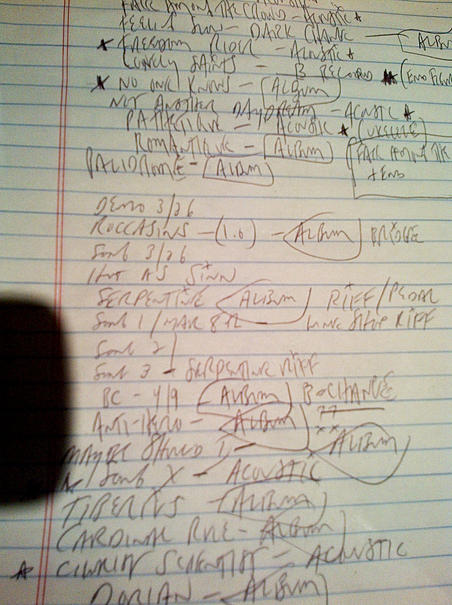 - ACOUSTIC *
SUN - DARK CHANGE - ALBUM
* FREEDOM RIDER - ACOUSTIC *
LONELY SAINTS - B RECORD
* NO ONE KNOWS - ALBUM
NOT ANOTHER DAYDREAM - ACOUSTIC *
PATHETIQUE - ACOUSTIC *
ROMANTIQUE - ALBUM
- ALBUM
DEMO 3/26
ROCCASINS - (1.0) - ALBUM BRIDGE
SONG 3/26
HOT AS SINN
SERPENTINE ALBUM RIFF/
SONG 1 / MAR 8 RIFF
SONG 2
SONG 3 - SERPENTINE RIFF
BC - 4/9 ALBUM B-CHANGE
ANTI-HERO - ALBUM ??
MAYBE SHOULD ALBUM
SONG X - ACOUSTIC
TIBERIUS - ALBUM
CARDINAL RULE - ALBUM
* SCIENTIST - ACOUSTIC
DORIAN - ALBUM